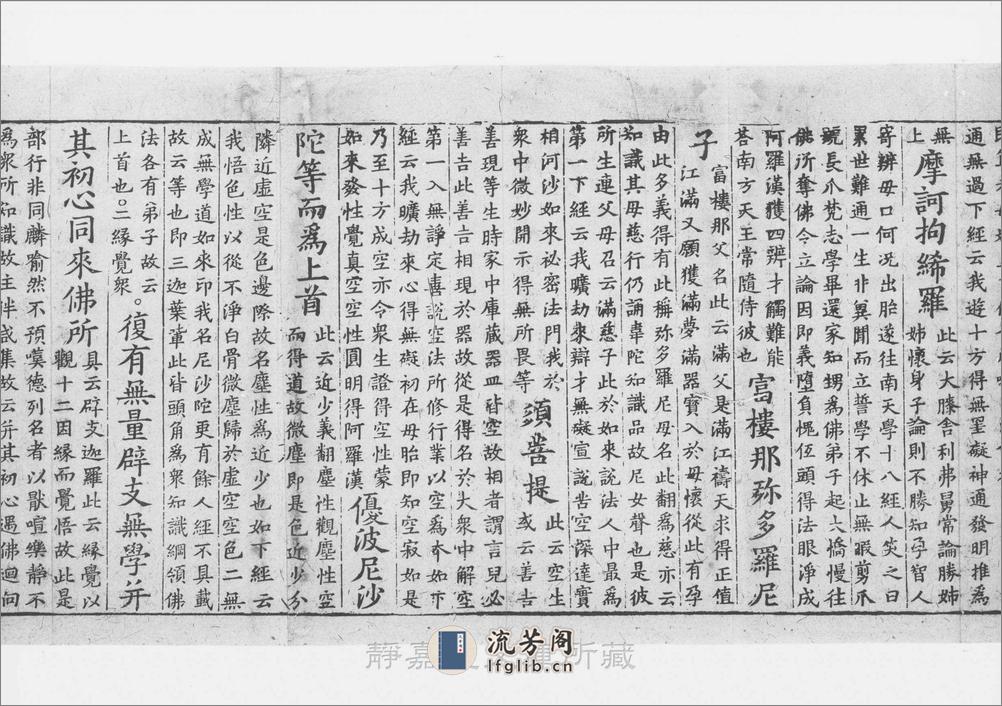 通無過下經云我遊十方得無罣礙神通發明推為
無
上
摩訶拘絺羅
此云大膝舍利弗舅常論勝姊
姉懷身子論則不勝知孕智人
寄辨毋口何況出胎遂往南天學十八經人笑之曰
累世難通一生非兾聞而立誓學不休止無暇剪爪
號長爪梵志學畢還家知甥為佛弟子起大憍慢往
佛所奪佛令立論因即義墮負愧伍頭得法眼淨成
阿羅漢獲四辨才觸難能
荅南方天王常隨侍彼也
富樓那弥多羅尼
子
富樓那父名此云滿父是滿江禱天求得正值
江滿又願獲滿夢滿器寶入於毋懷從此有孕
由此多義得有此稱弥多羅尼毋名此翻為慈亦云
知識其毋慈行仍誦韋陀知識品故尼女聲也是彼
所生連父毋召云滿慈子此於如來說法人中最為
第一下經云我曠劫來辯才無礙宣說苦空深達實
相河沙如來祕密法門我於
衆中微妙開示得無所畏等
須菩提
此云空生
或云善吉
善現等生時家中庫藏器皿皆空故相者謂言兒必
善吉此善吉相現於器故從是得名於大衆中解空
第一入無諍定喜說空法所修行業以空為本如下
經云我曠劫來心得無礙初在毋胎即知空寂如是
乃至十方成空亦令衆生證得空性蒙
如來發性覺真空空性圓明得阿羅漢
優波尼沙
陀等而為上首
此云近少義翻塵性觀塵性空
而得道故微塵即是色近少分
隣近虛空是色邊際故名塵性為近少也如下經云
我悟色性以從不淨白骨微塵歸於虛空空色二無
成無學道如來印我名尼沙陀更有餘人經不具載
故云等也即三迦葉軰此皆頭角為衆知識綱領佛
法各有弟子故云
上首也。二緣覺衆。
復有無量辟支無學并
其初心同來佛所
具云辟支迦羅此云緣覺以
觀十二因緣而覺悟故此是
部行非同麟喻然不預嘆德列名者以猒喧樂靜不
為衆所知識故主伴咸集故云并其初心遇佛迴向
流芳阁
lfglib.cn